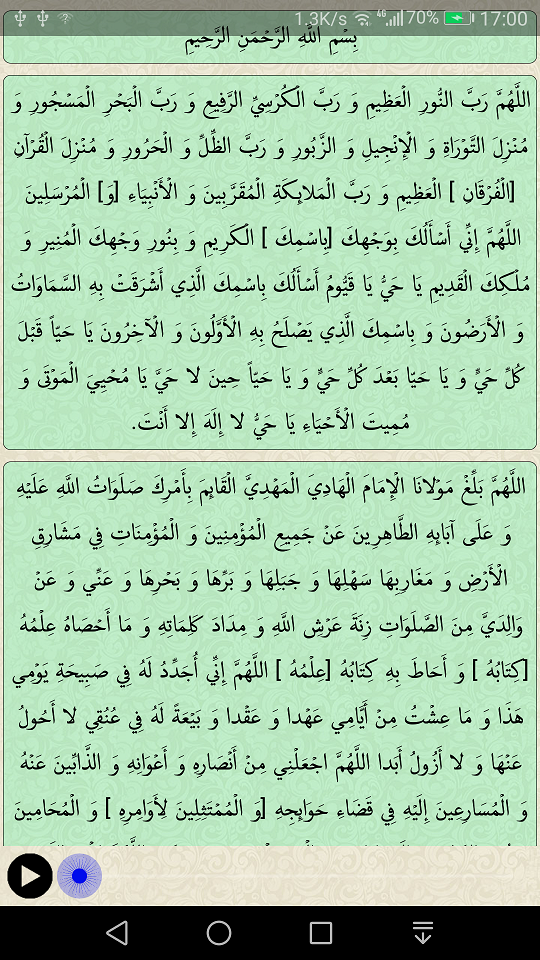 1.3K/s 4G 70% 17:00
بِسْمِ اللَّهِ الرَّحْمَنِ الرَّحِيمِ
اللَّهُمَّ رَبَّ النُّورِ الْعَظِيمِ وَ رَبَّ الْكُرْسِيِّ الرَّفِيعِ وَ رَبَّ الْبَحْرِ الْمَسْجُورِ وَ
مُنْزِلَ التَّوْرَاةِ وَ الْإِنْجِيلِ وَ الزَّبُورِ وَ رَبَّ الظِّلِّ وَ الْحَرُورِ وَ مُنْزِلَ الْقُرْآنِ
[الْفُرْقَانِ ] الْعَظِيمِ وَ رَبَّ الْمَلائِكَةِ الْمُقَرَّبِينَ وَ الْأَنْبِيَاءِ [وَ] الْمُرْسَلِينَ
اللَّهُمَّ إِنِّي أَسْأَلُكَ بِوَجْهِكَ [بِاسْمِكَ ] الْكَرِيمِ وَ بِنُورِ وَجْهِكَ الْمُنِيرِ وَ
مُلْكِكَ الْقَدِيمِ يَا حَيُّ يَا قَيُّومُ أَسْأَلُكَ بِاسْمِكَ الَّذِي أَشْرَقَتْ بِهِ السَّمَاوَاتُ
وَ الْأَرَضُونَ وَ بِاسْمِكَ الَّذِي يَصْلَحُ بِهِ الْأَوَّلُونَ وَ الْآخِرُونَ يَا حَيّاً قَبْلَ
كُلِّ حَيٍّ وَ يَا حَيّا بَعْدَ كُلِّ حَيٍّ وَ يَا حَيّاً حِينَ لا حَيَّ يَا مُحْيِيَ الْمَوْتَى وَ
مُمِيتَ الْأَحْيَاءِ يَا حَيُّ لا إِلَهَ إِلا أَنْتَ.
اللَّهُمَّ بَلِّغْ مَوْلانَا الْإِمَامَ الْهَادِيَ الْمَهْدِيَّ الْقَائِمَ بِأَمْرِكَ صَلَوَاتُ اللَّهِ عَلَيْهِ
وَ عَلَى آبَائِهِ الطَّاهِرِينَ عَنْ جَمِيعِ الْمُؤْمِنِينَ وَ الْمُؤْمِنَاتِ فِي مَشَارِقِ
الْأَرْضِ وَ مَغَارِبِهَا سَهْلِهَا وَ جَبَلِهَا وَ بَرِّهَا وَ بَحْرِهَا وَ عَنِّي وَ عَنْ
وَالِدَيَّ مِنَ الصَّلَوَاتِ زِنَةَ عَرْشِ اللَّهِ وَ مِدَادَ كَلِمَاتِهِ وَ مَا أَحْصَاهُ عِلْمُهُ
[كِتَابُهُ ] وَ أَحَاطَ بِهِ كِتَابُهُ [عِلْمُهُ ] اللَّهُمَّ إِنِّي أُجَدِّدُ لَهُ فِي صَبِيحَةِ يَوْمِي
هَذَا وَ مَا عِشْتُ مِنْ أَيَّامِي عَهْدا وَ عَقْدا وَ بَيْعَةً لَهُ فِي عُنُقِي لا أَحُولُ
عَنْهَا وَ لا أَزُولُ أَبَدا اللَّهُمَّ اجْعَلْنِي مِنْ أَنْصَارِهِ وَ أَعْوَانِهِ وَ الذَّابِّينَ عَنْهُ
وَ الْمُسَارِعِينَ إِلَيْهِ فِي قَضَاءِ حَوَائِجِهِ [وَ الْمُمْتَثِلِينَ لِأَوَامِرِهِ ] وَ الْمُحَامِينَ